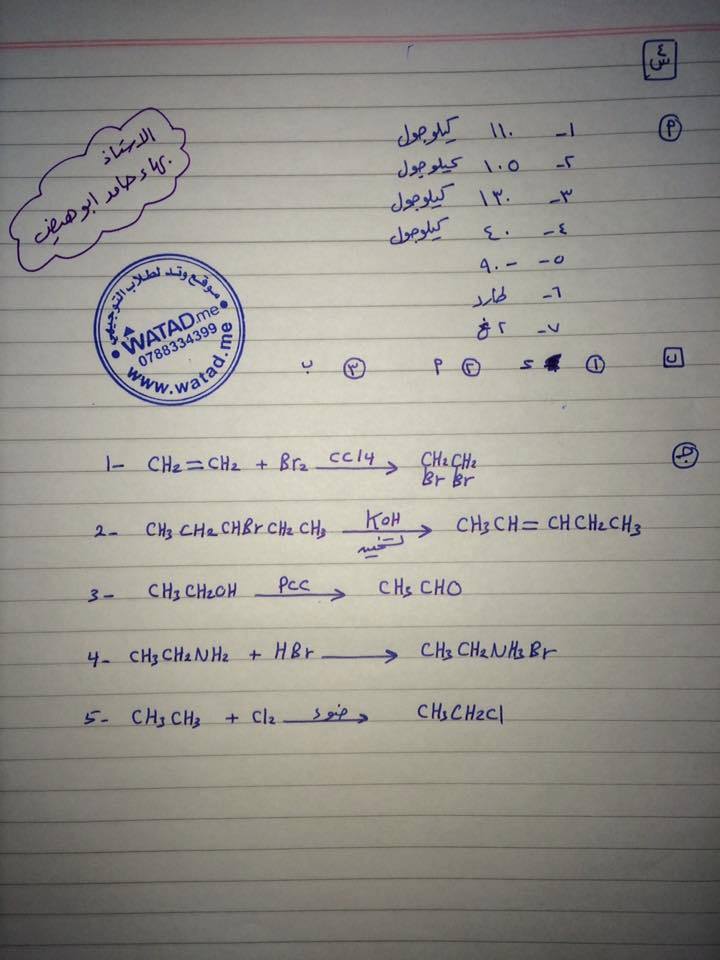 س٤
الاستاذ
بهاء حامد ابو هيض
موقع وتد لطلاب التوجيهي
WATAD.me
0788334399
www.watad.me
أ
١- ١١٠ كيلوجول
٢- ١٠٥ كيلوجول
٣- ١٣٠ كيلوجول
٤- ٤٠ كيلوجول
٥- -٩٠
٦- طارد
٧- ٢ غ
ب ① د ② أ ③ ب
ج
1- CH₂=CH₂ + Br₂ CCl4 → CH₂CH₂
Br Br
2- CH₃CH₂CHBrCH₂CH₃ KOH تسخين → CH3CH=CHCH2CH3
3- CH₃CH₂OH PCC → CH₃CHO
4- CH₃CH₂NH₂ + HBr → CH₃CH₂NH₃Br
5- CH₃CH₃ + Cl₂ ضوء → CH₃CH₂Cl